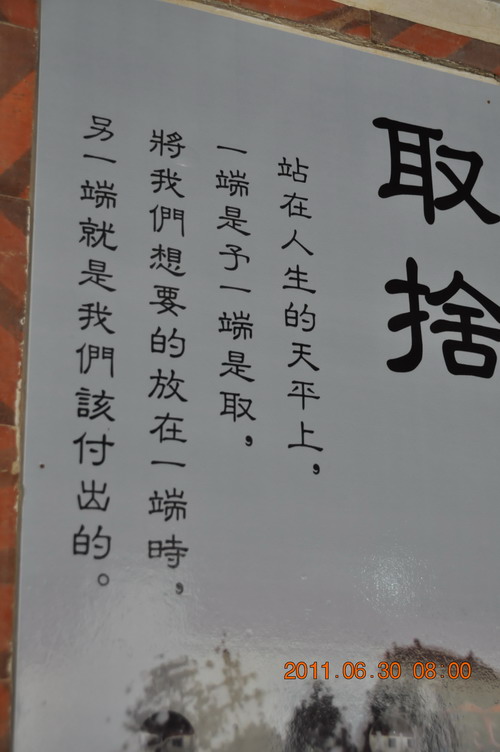 取捨
站在人生的天平上，
一端是予一端是取，
將我們想要的放在一端時，
另一端就是我們該付出的。
2011.06.30 08:00